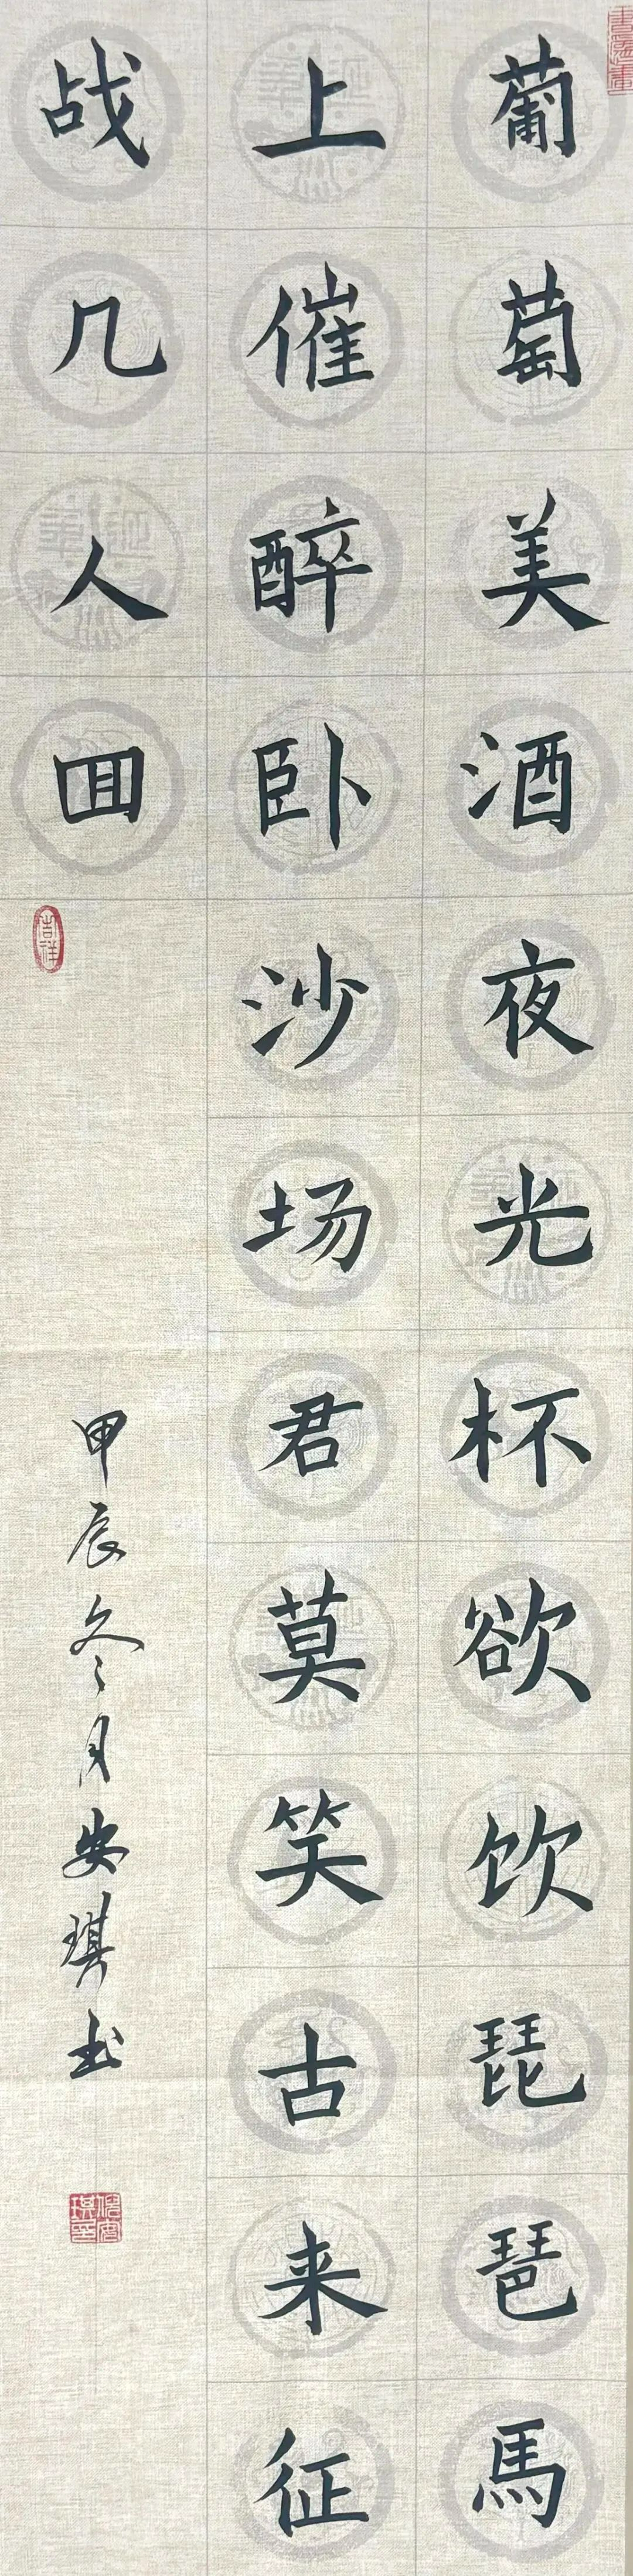 葡萄美酒夜光杯欲饮琵琶馬
上催醉卧沙场君莫笑古来征
战几人囬
吉祥
甲辰冬月安琪书